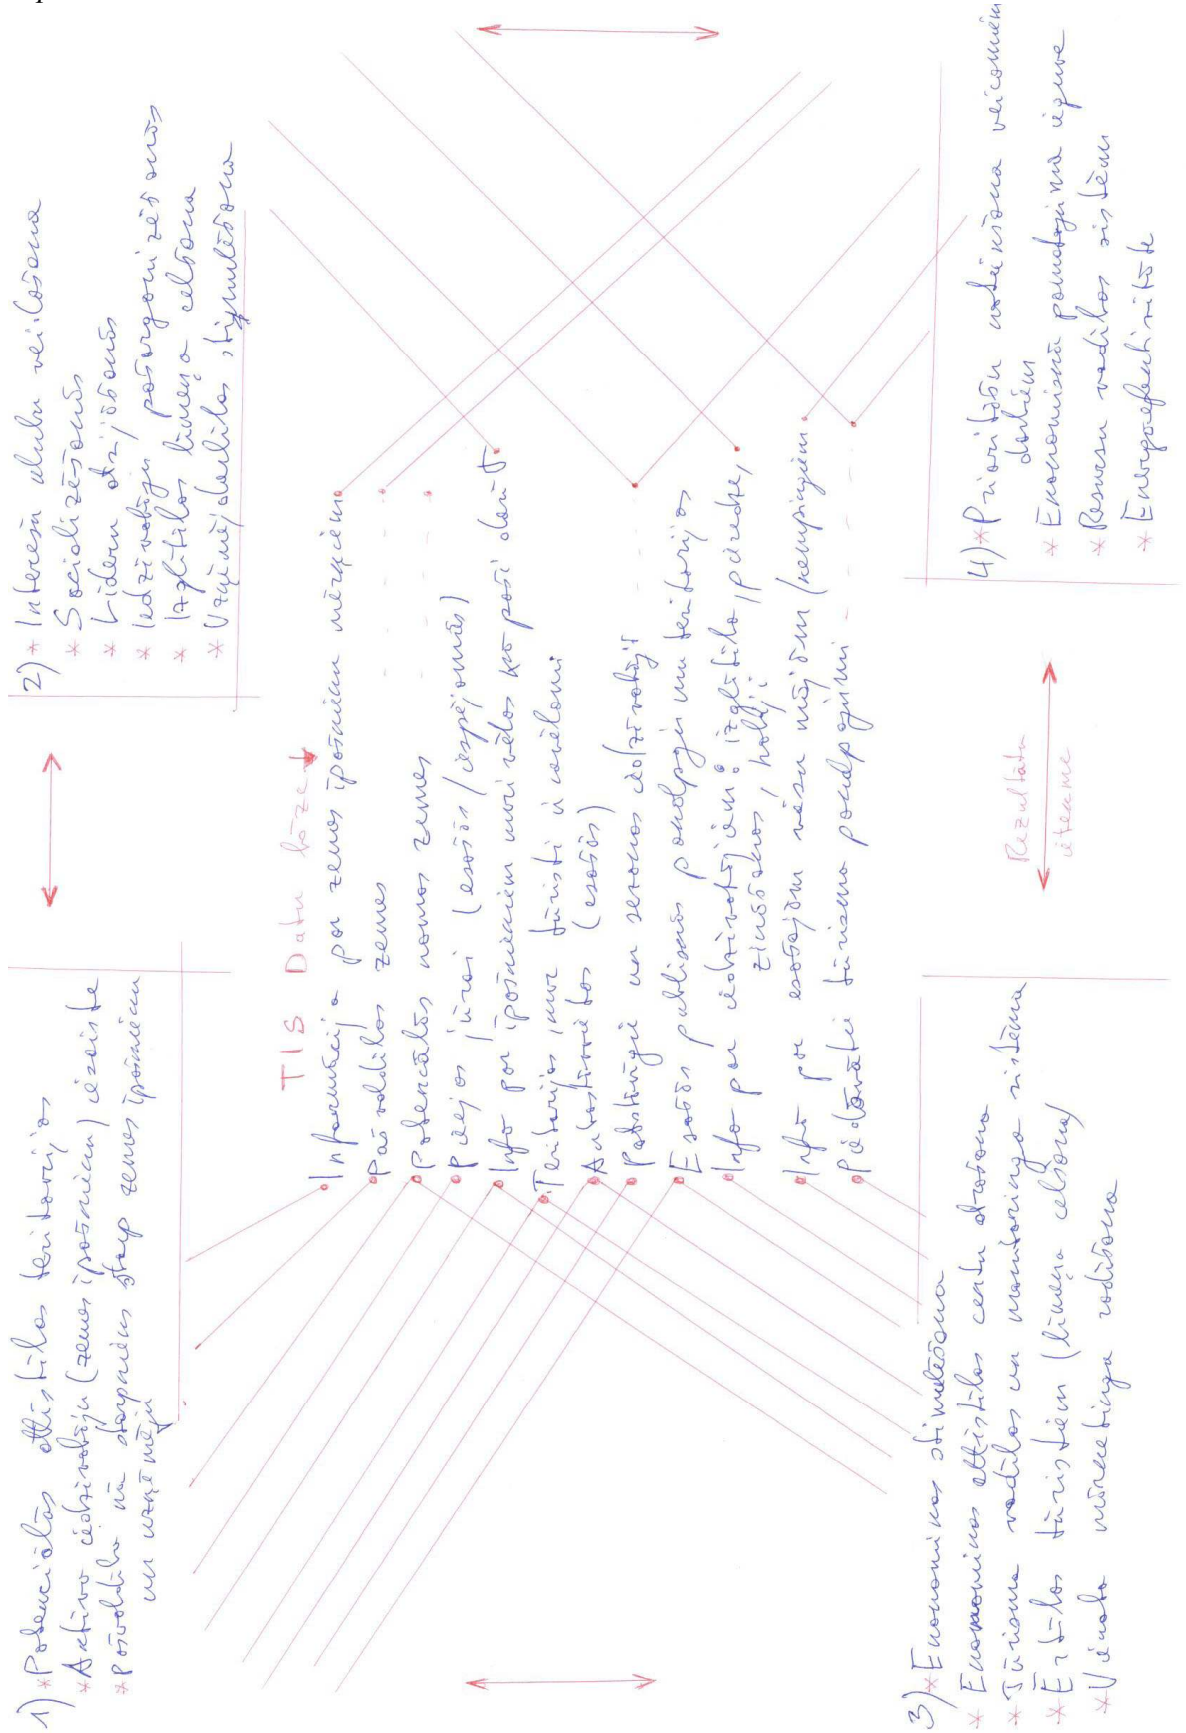 1) * Potenciālās attīstības teritorijas
* Aktīvo iedzīvotāju (zemes īpašnieku) iesaiste
* Pašvaldība kā starpnieks starp zemes īpašnieku
un uzņēmēju
2) * Interešu klubu veidošana
* Socializēšanās
* Līderu atziņšanās
* Iedzīvotāju pašorganizēšanās
* Izglītības līmeņa celšana
* Uzņēmējdarbības stimulēšana
TIS Datu bāze
Informācija par zemes īpašnieku mērķiem
Pašvaldības zemes
Potenciālās nomas zemes
Pieejas jūrai (esošās / iespējamās)
Info par īpašniekiem kuri vēlas ko paši darīt
Teritorijas, kur tūristi ir vēlami
Autostāvvietas (esošās)
Pastāvīgie un sezonas iedzīvotāji
Esošās publiskās pakalpojumu teritorijas
Info par iedzīvotājiem: izglītība, pieredze,
zināšanas, hobiji
Info par esošajām viesu mājām (kempingiem
Piedāvātie tūrisma pakalpojumi
3) * Ekonomikas stimulēšana
* Ekonomikas attīstības centu atrašana
* Tūrisma vadības un monitoringa sistēma
* Ērtības tūristiem (līmeņa celšana)
* Vienota mārketinga radīšana
Rezultātu
ietekme
4) * Prioritāšu noteikšana veicamiem
darbiem
* Ekonomiskā pamatojuma ieguve
* Resursu vadības sistēm
* Energoefektivitāte